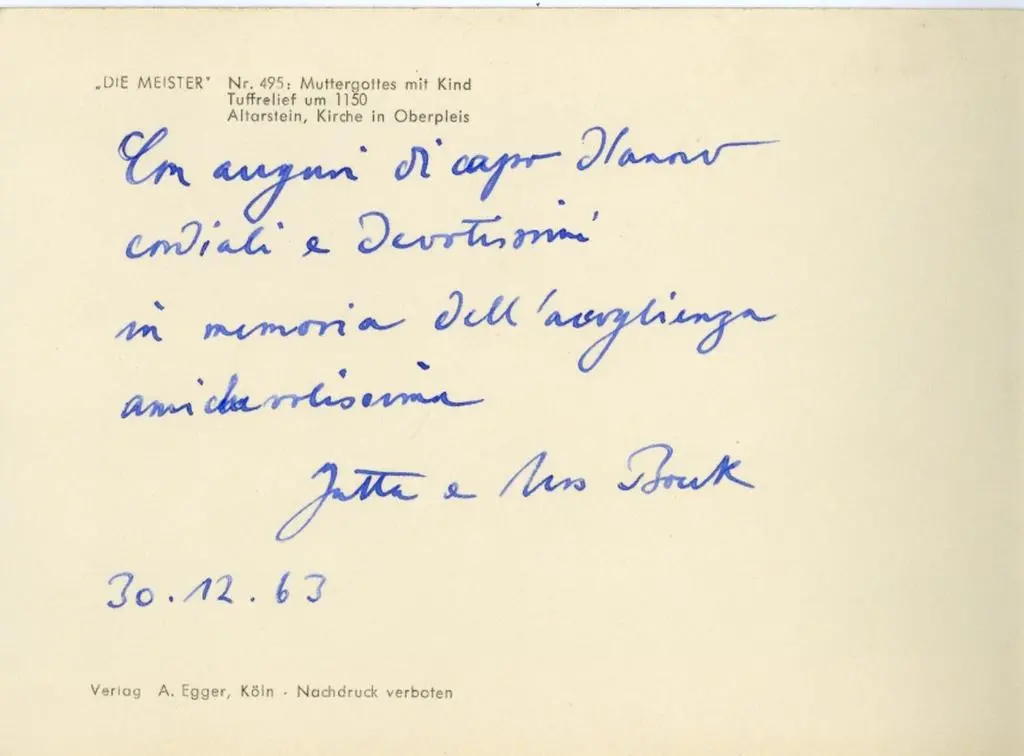 „DIE MEISTER" Nr. 495: Muttergottes mit Kind
Tuffrelief um 1150
Altarstein, Kirche in Oberpleis
Con auguri di capo d'anno
cordiali e devotissimi
in memoria dell'accoglienza
amichevolissima
Jutta e
30.12.63
Verlag A. Egger, Köln - Nachdruck verboten